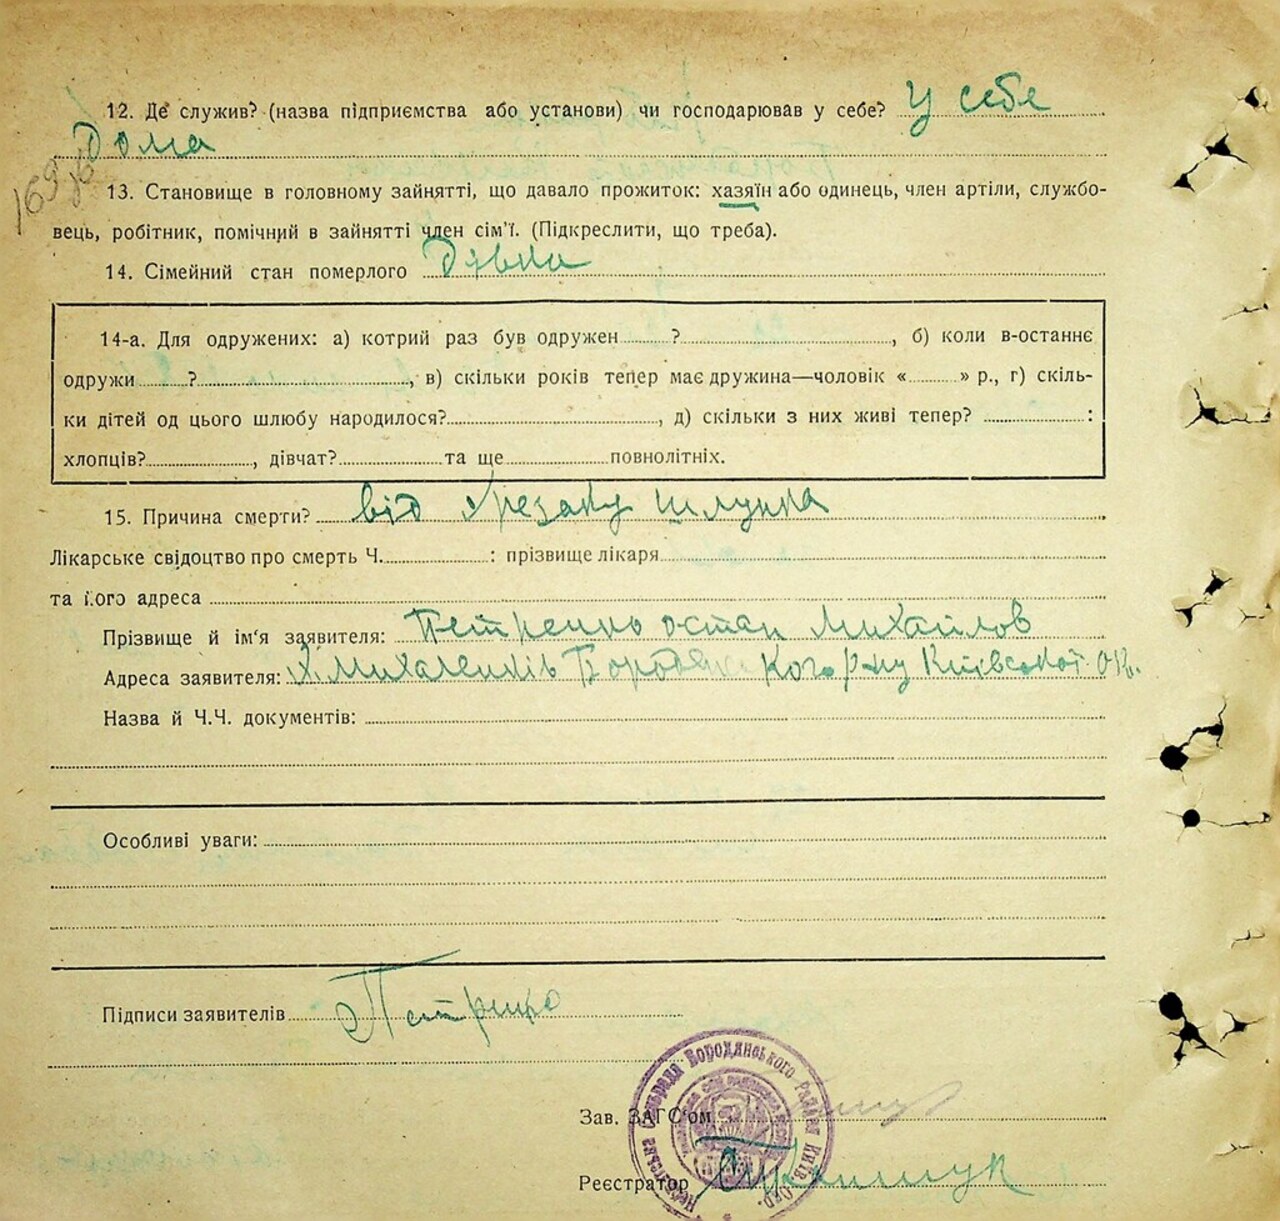 12. Де служив? (назва підприємства або установи) чи господарював у себе? у себе
Дома
13. Становище в головному зайнятті, що давало прожиток: хазяїн або одинець, член артіли, службо-
вець, робітник, помічний в зайнятті член сім'ї. (Підкреслити, що треба).
14. Сімейний стан померлого Дівка
14-а. Для одружених: а) котрий раз був одружен ? , б) коли в-останнє
одружи ? , в) скільки років тепер має дружина—чоловік « » р., г) скіль-
ки дітей од цього шлюбу народилося? , д) скільки з них живі тепер? :
хлопців? , дівчат? та ще повнолітніх.
15. Причина смерти? від Урезаку шлунка
Лікарське свідоцтво про смерть Ч. : прізвище лікаря
та його адреса
Прізвище й ім'я заявителя: Петренко остап Михайлов
Адреса заявителя: Х. Михаленків Бородянського р-ну Київської ок.
Назва й Ч.Ч. документів:
Особливі уваги:
Підписи заявителів Петренко
Сільрада Бородянського Району Київ. Окр.
Зав. ЗАГС'ом
Реєстратор